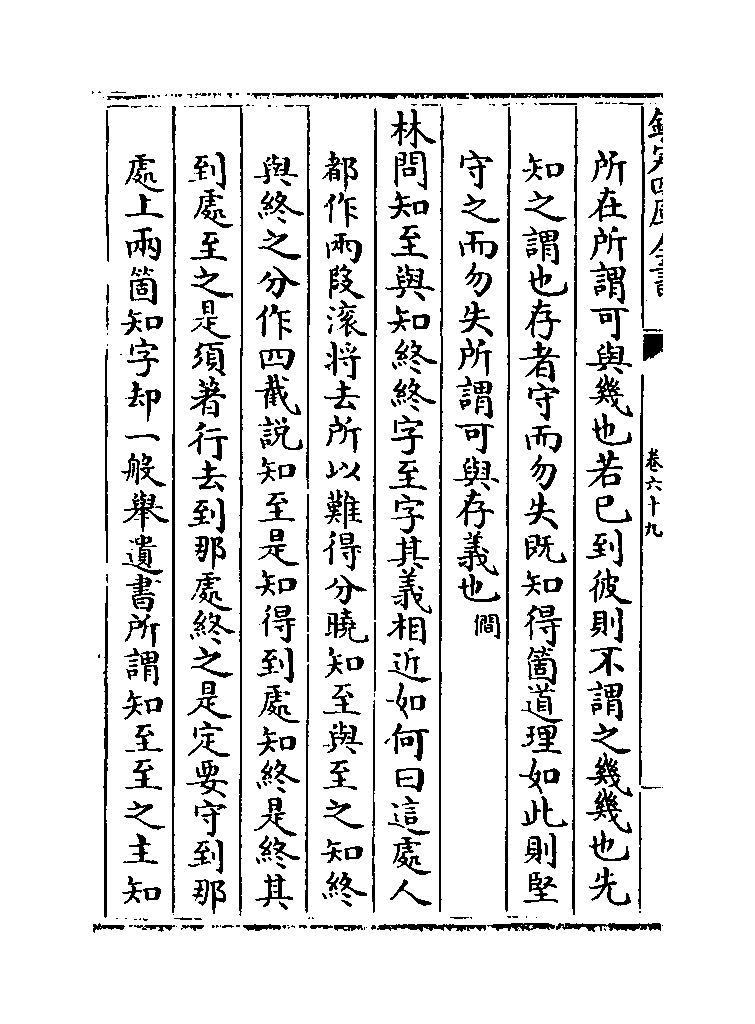 欽定四庫全書
卷六十九
所在所謂可與幾也若已到彼則不謂之幾幾也先
知之謂也存者守而勿失既知得箇道理如此則堅
守之而勿失所謂可與存義也僩
林問知至與知終終字至字其義相近如何曰這處人
都作兩段滚将去所以難得分曉知至與至之知終
與終之分作四截説知至是知得到處知終是終其
到處至之是須著行去到那處終之是定要守到那
處上兩箇知字却一般舉遺書所謂知至至之主知